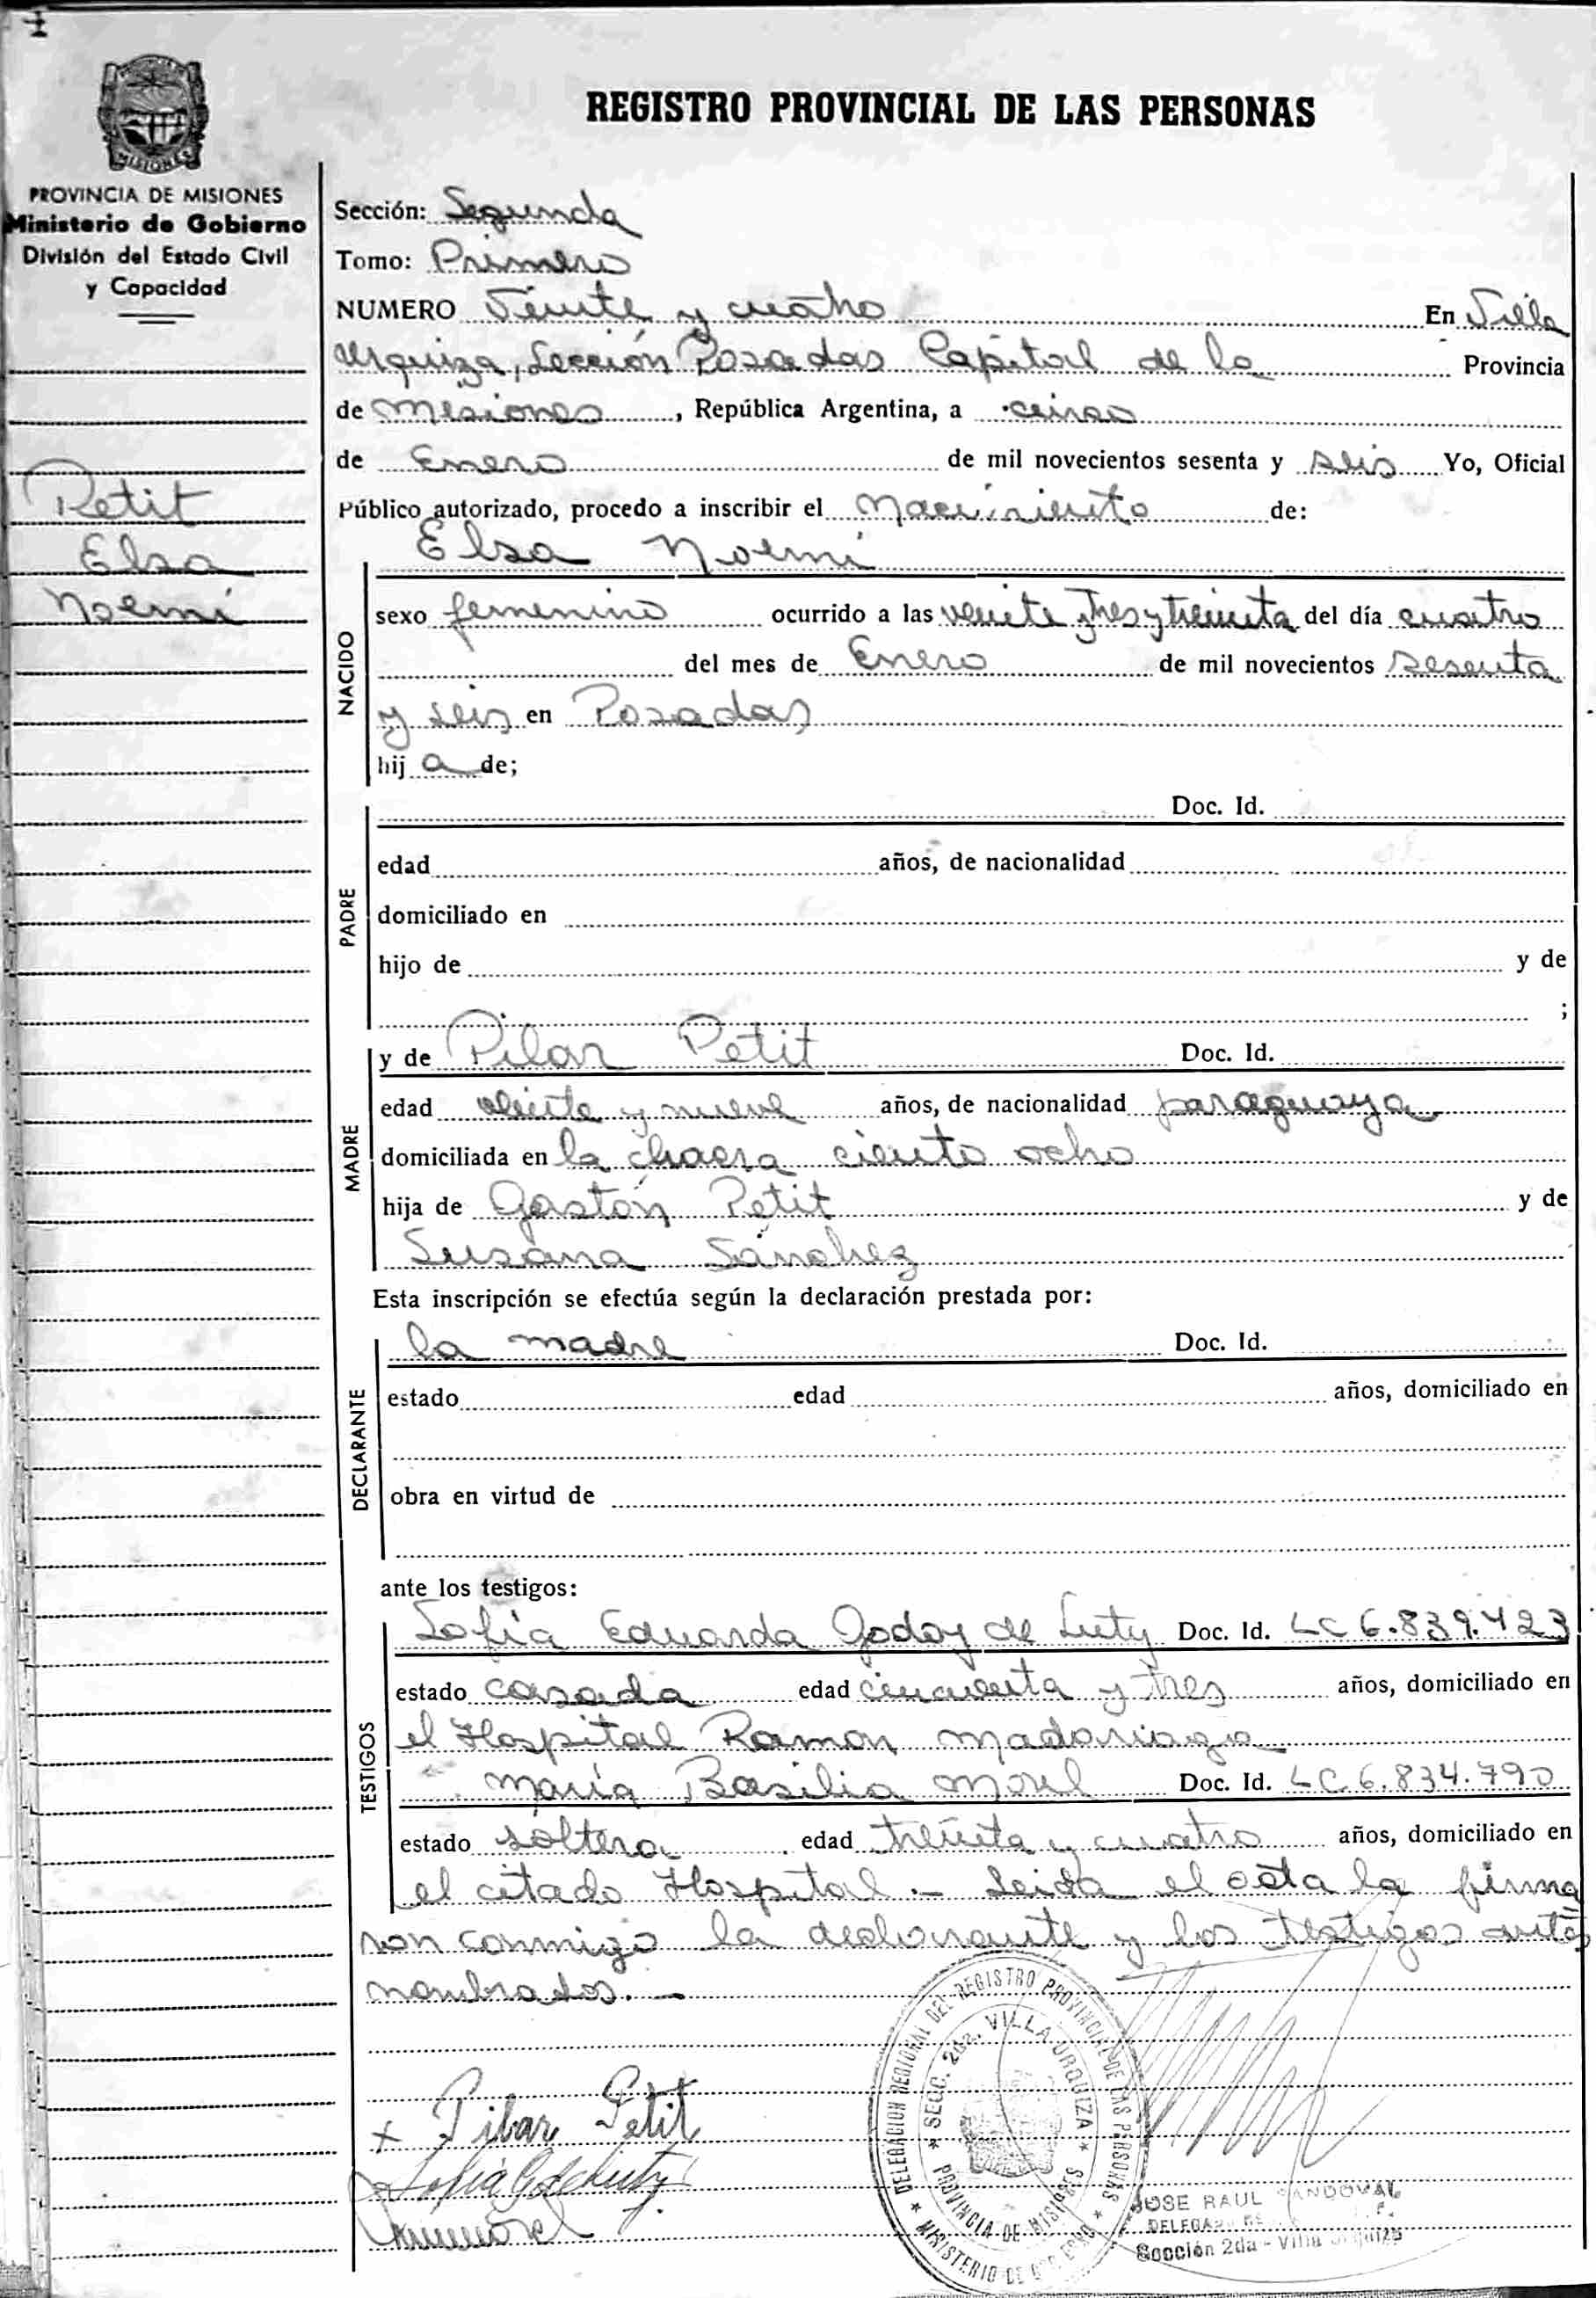 MISIONES
REGISTRO PROVINCIAL DE LAS PERSONAS
PROVINCIA DE MISIONES
Ministerio de Gobierno
División del Estado Civil
y Capacidad
Petit
Elsa
Noemí
Sección: Segunda
Tomo: Primero
NUMERO Veinte y cuatro En Villa
Urquiza, Sección Posadas Capital de la Provincia
de Misiones, República Argentina, a cinco
de Enero de mil novecientos sesenta y seis Yo, Oficial
Público autorizado, procedo a inscribir el Nacimiento de:
Elsa Noemí
NACIDO
sexo femenino ocurrido a las veinte y tres y treinta del día cuatro
del mes de Enero de mil novecientos sesenta
y seis en Posadas
hij a de;
PADRE
Doc. Id.
edad años, de nacionalidad
domiciliado en
hijo de y de
;
MADRE
y de Pilar Petit Doc. Id.
edad veinte y nueve años, de nacionalidad paraguaya
domiciliada en la chacra ciento ocho
hija de Gastón Petit y de
Susana Sánchez
Esta inscripción se efectúa según la declaración prestada por:
DECLARANTE
la madre Doc. Id.
estado edad años, domiciliado en
obra en virtud de
ante los testigos:
TESTIGOS
Sofía Eduarda Godoy de Luty Doc. Id. LC 6.839.423
estado casada edad cincuenta y tres años, domiciliado en
el Hospital Ramon Madariaga
María Basilia Morel Doc. Id. LC 6.834.790
estado soltera edad treinta y cuatro años, domiciliado en
el citado Hospital.- Leida el acta la firma
ron conmigo la declarante y los testigos ante
nombrados.-
x Pilar Petit
DELEGACION REGIONAL DEL REGISTRO PROVINCIAL DE LAS PERSONAS
SECC. 2da. VILLA URQUIZA
PROVINCIA DE MISIONES
MINISTERIO DE GOBIERNO
JOSE RAUL SANDOVAL
Sección 2da - Villa Urquiza